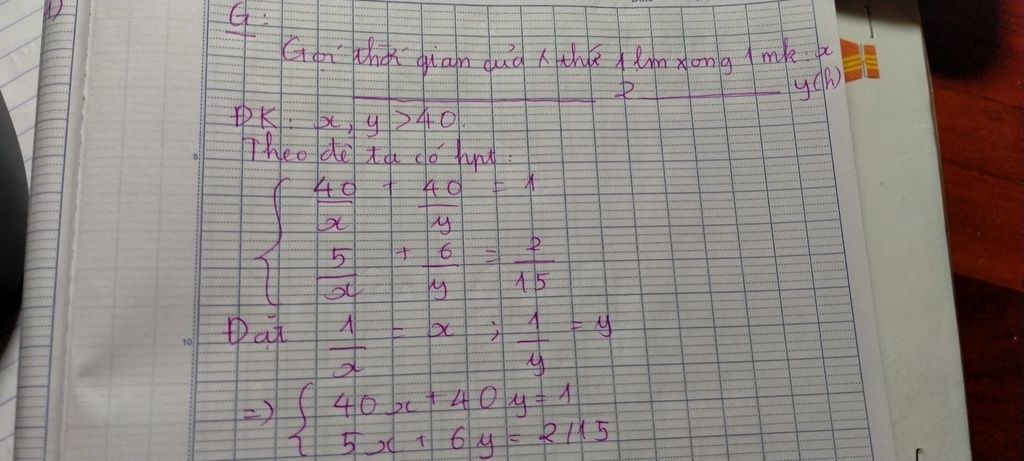 G:
Gọi thời gian của x thứ 1 làm xong 1 mk: x
2 y(h)
ĐK: x, y > 40.
Theo đề ta có hpt:
{ 40/x + 40/y = 1
5/x + 6/y = 2/15
Đặt 1/x = x ; 1/y = y
=> { 40x + 40y = 1
5x + 6y = 2/15